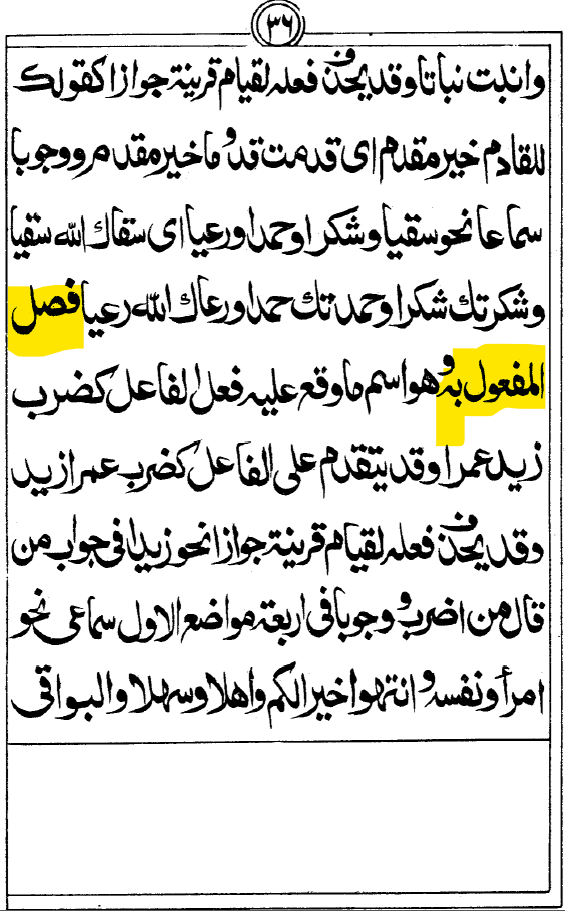 ٣٦
وانبت نباتا وقد يحذف فعله لقيام قرينة جوازا كقولك
للقادم خير مقدم اى قدمت قدوما خير مقدم ووجوبا
سماعا نحو سقيا وشكرا وحمدا ورعيا اى سقاك الله سقيا
وشكرتك شكرا وحمدتك حمدا ورعاك الله رعيا فصل
المفعول به وهو اسم ما وقع عليه فعل الفاعل كضرب
زيد عمرا وقد يتقدم على الفاعل كضرب عمرا زيد
وقد يحذف فعله لقيام قرينة جوازا نحو زيدا فى جواب من
قال من اضرب ووجوبا فى اربعة مواضع الاول سماعى نحو
امرأ ونفسه وانتهوا خيرا لكم واهلا وسهلا والبواقى